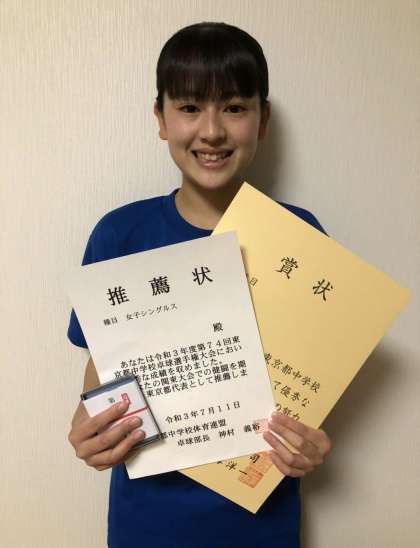 推薦状
種目 女子シングルス
殿
あなたは令和3年度第74回東
京都中学校卓球選手権大会におい
な成績を収めました。
たの関東大会での健闘を期
東京都代表として推薦しま
令和3年7月11日
都中学校体育連盟
卓球部長 神村 義裕
賞状
目
東京都中学校
て優秀な
の努力
司
洋一
第